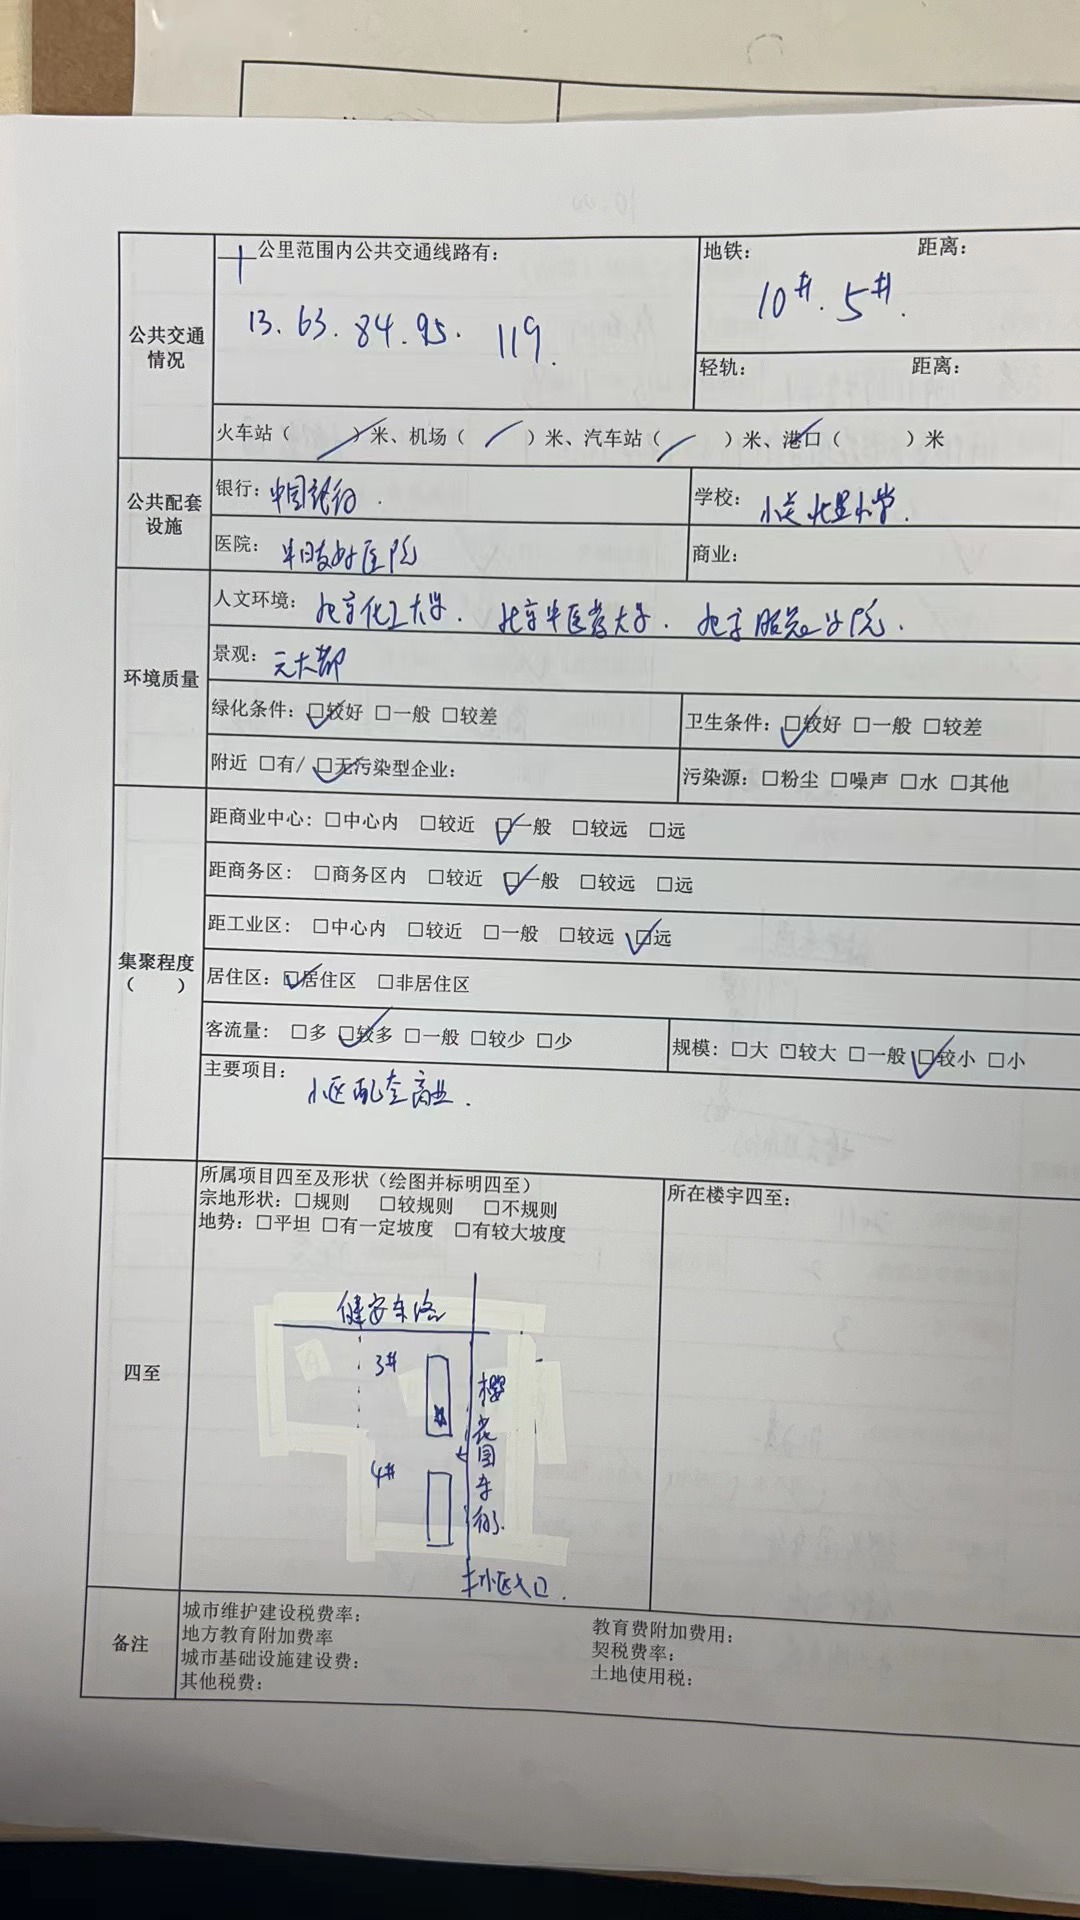 公里范围内公共交通线路有：
地铁：　距离：
13. 63. 84. 95. 119.
10#. 5#.
公共交通情况
轻轨：　距离：
火车站（　）米、机场（　）米、汽车站（　）米、港口（　）米
公共配套设施
银行：中国银行.
学校：小关北里小学.
医院：中日友好医院
商业：
环境质量
人文环境：北京化工大学. 北京中医药大学. 北京服装学院.
景观：元大都
绿化条件：☑较好 □一般 □较差
卫生条件：☑较好 □一般 □较差
附近 □有/ ☑无污染型企业：
污染源：□粉尘 □噪声 □水 □其他
集聚程度
（　）
距商业中心：□中心内 □较近 ☑一般 □较远 □远
距商务区：□商务区内 □较近 ☑一般 □较远 □远
距工业区：□中心内 □较近 □一般 □较远 ☑远
居住区：☑居住区 □非居住区
客流量：□多 ☑较多 □一般 □较少 □少
规模：□大 □较大 □一般 ☑较小 □小
主要项目：小区配套商业.
四至
所属项目四至及形状（绘图并标明四至）
宗地形状：□规则 □较规则 □不规则
地势：□平坦 □有一定坡度 □有较大坡度
所在楼宇四至：
健安东路
3#
樱花园东街
4#
小区入口.
备注
城市维护建设税费率：
地方教育附加费率
城市基础设施建设费：
其他税费：
教育费附加费用：
契税费率：
土地使用税：